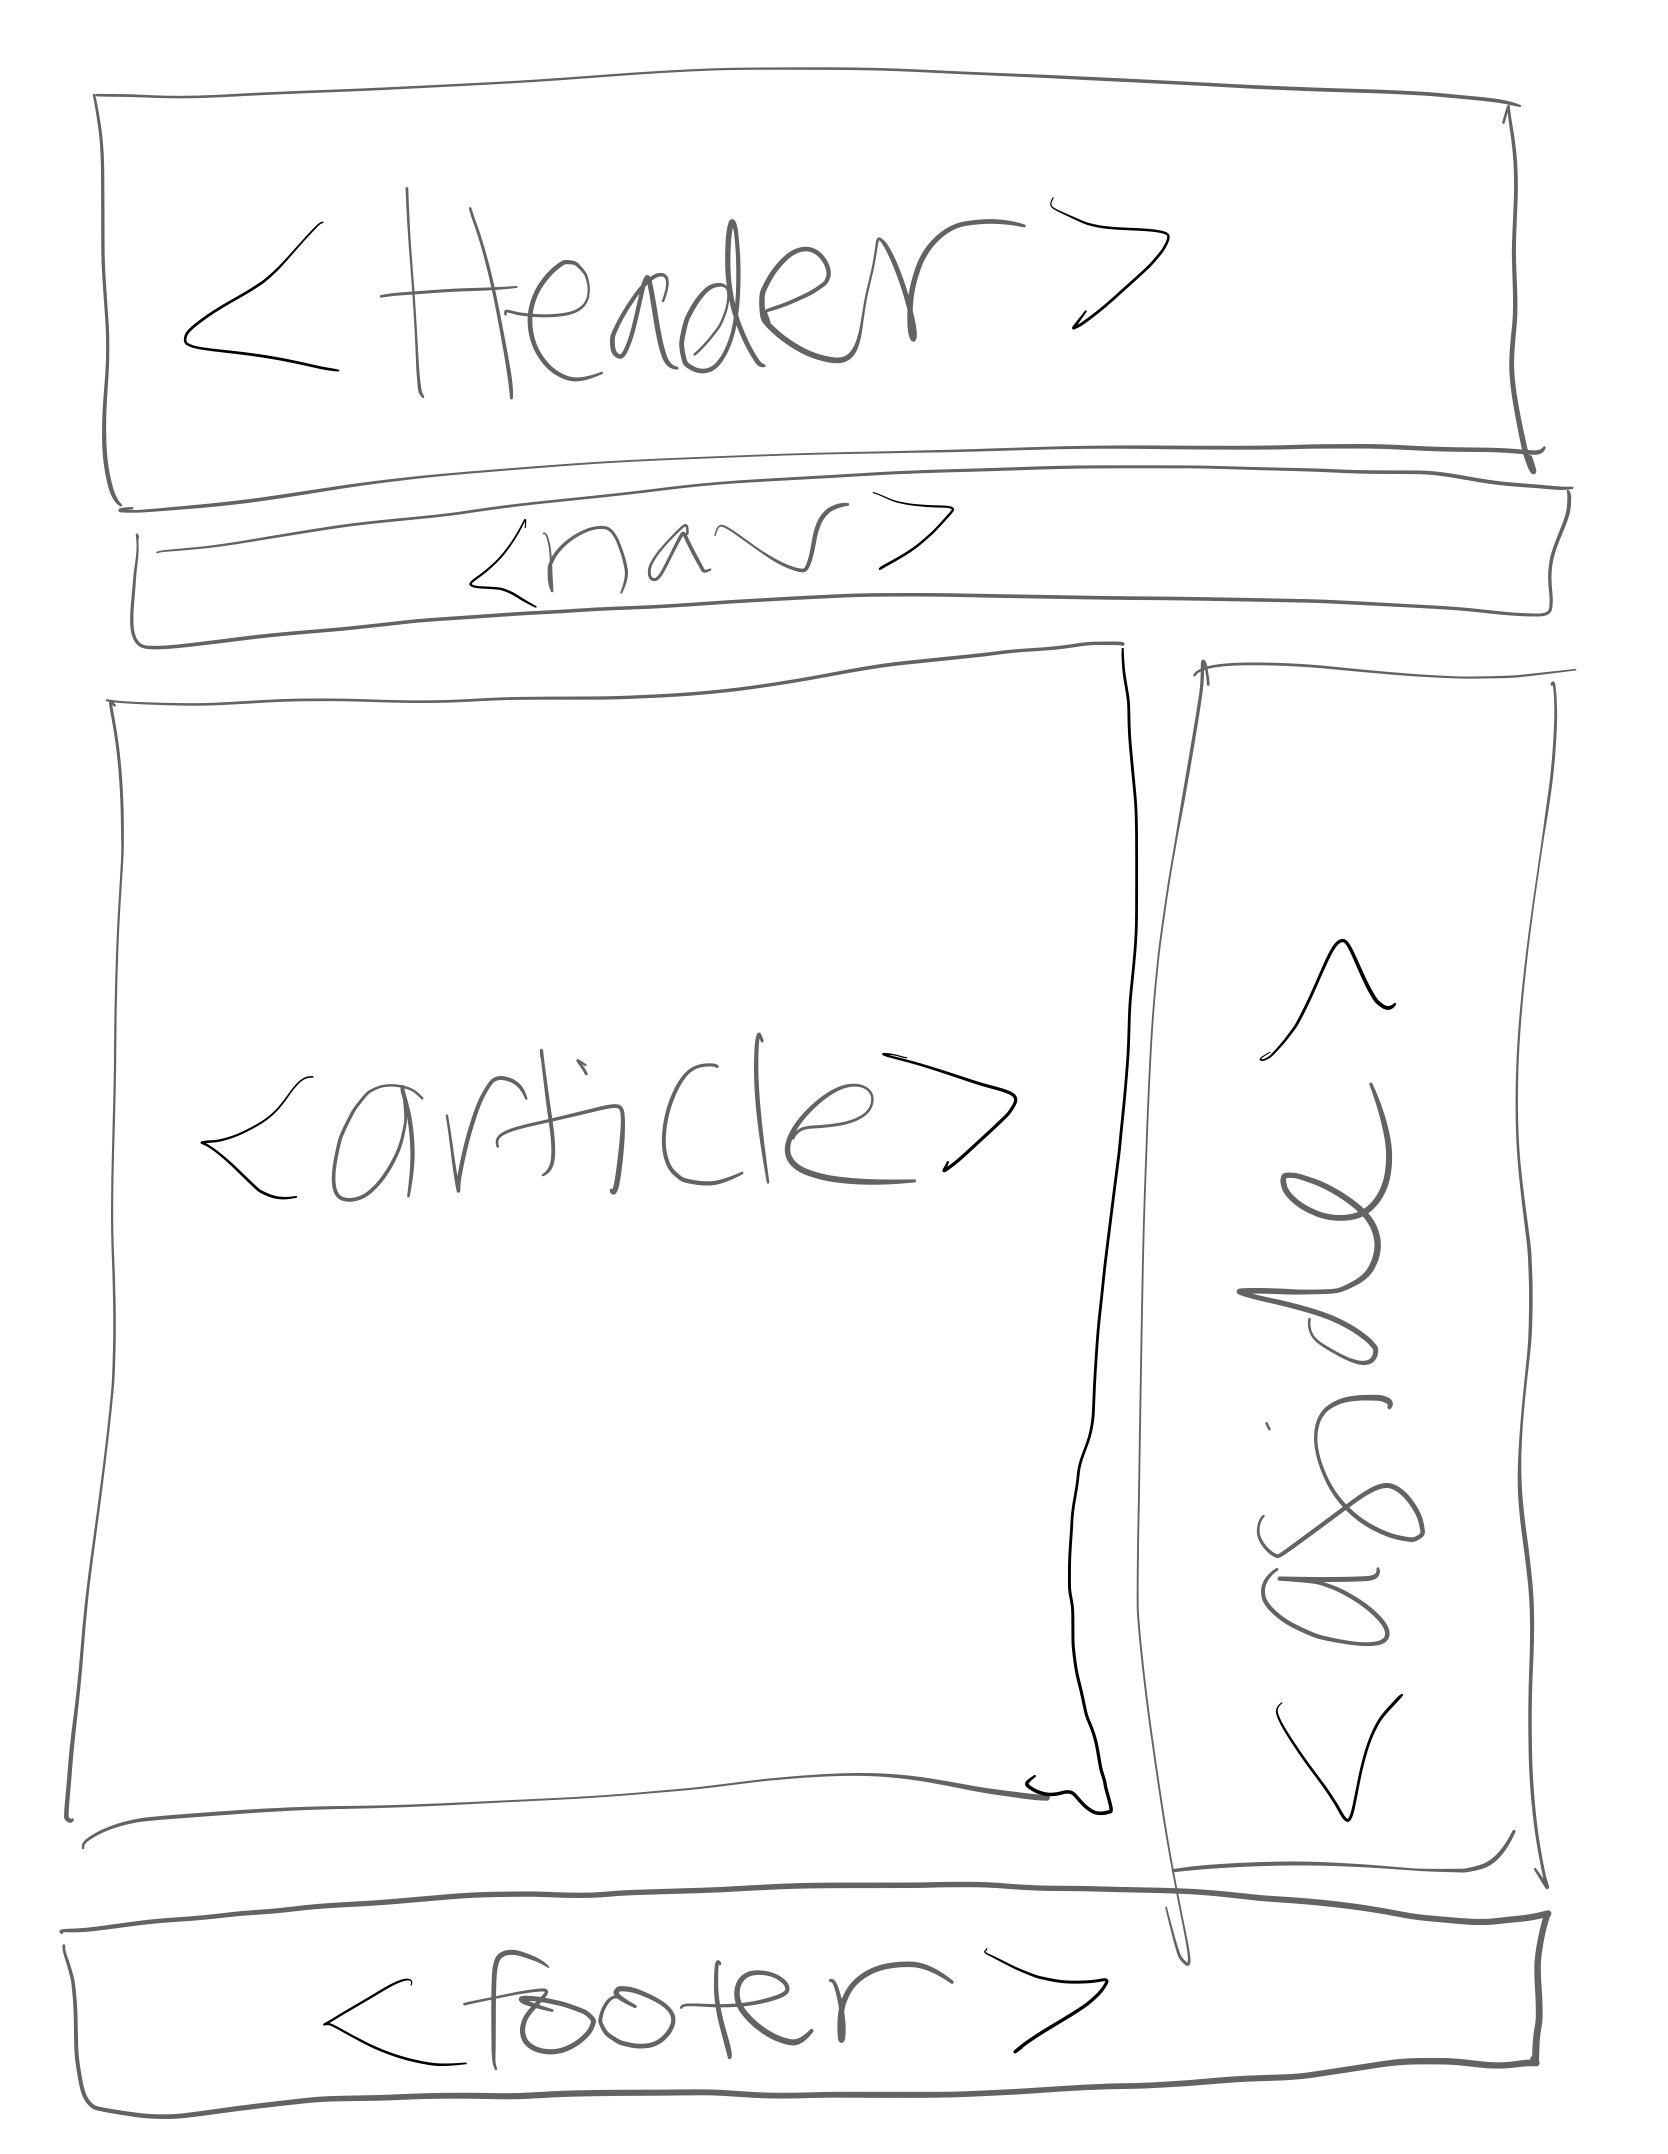 <Header>
<nav>
<article>
<aside>
<footer>